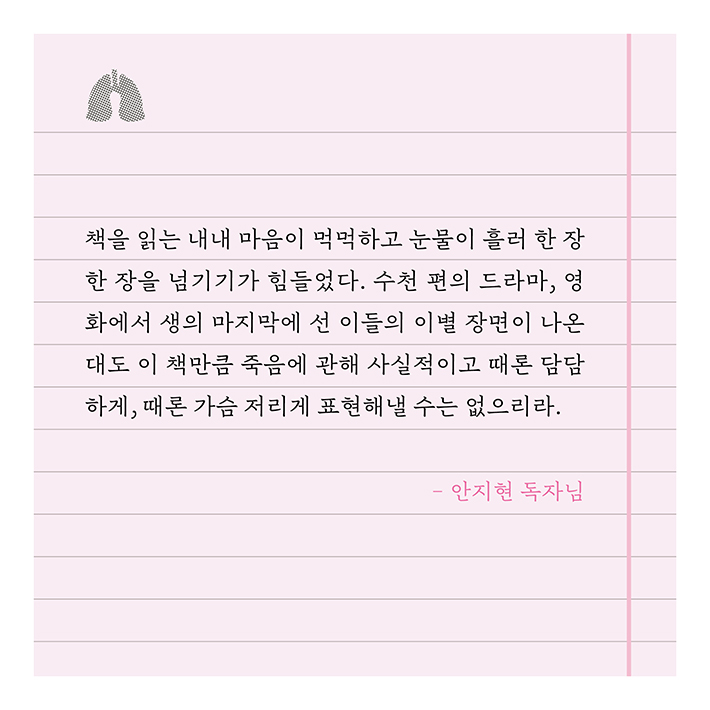 책을 읽는 내내 마음이 먹먹하고 눈물이 흘러 한 장
한 장을 넘기기가 힘들었다. 수천 편의 드라마, 영
화에서 생의 마지막에 선 이들의 이별 장면이 나온
대도 이 책만큼 죽음에 관해 사실적이고 때론 담담
하게, 때론 가슴 저리게 표현해낼 수는 없으리라.
- 안지현 독자님